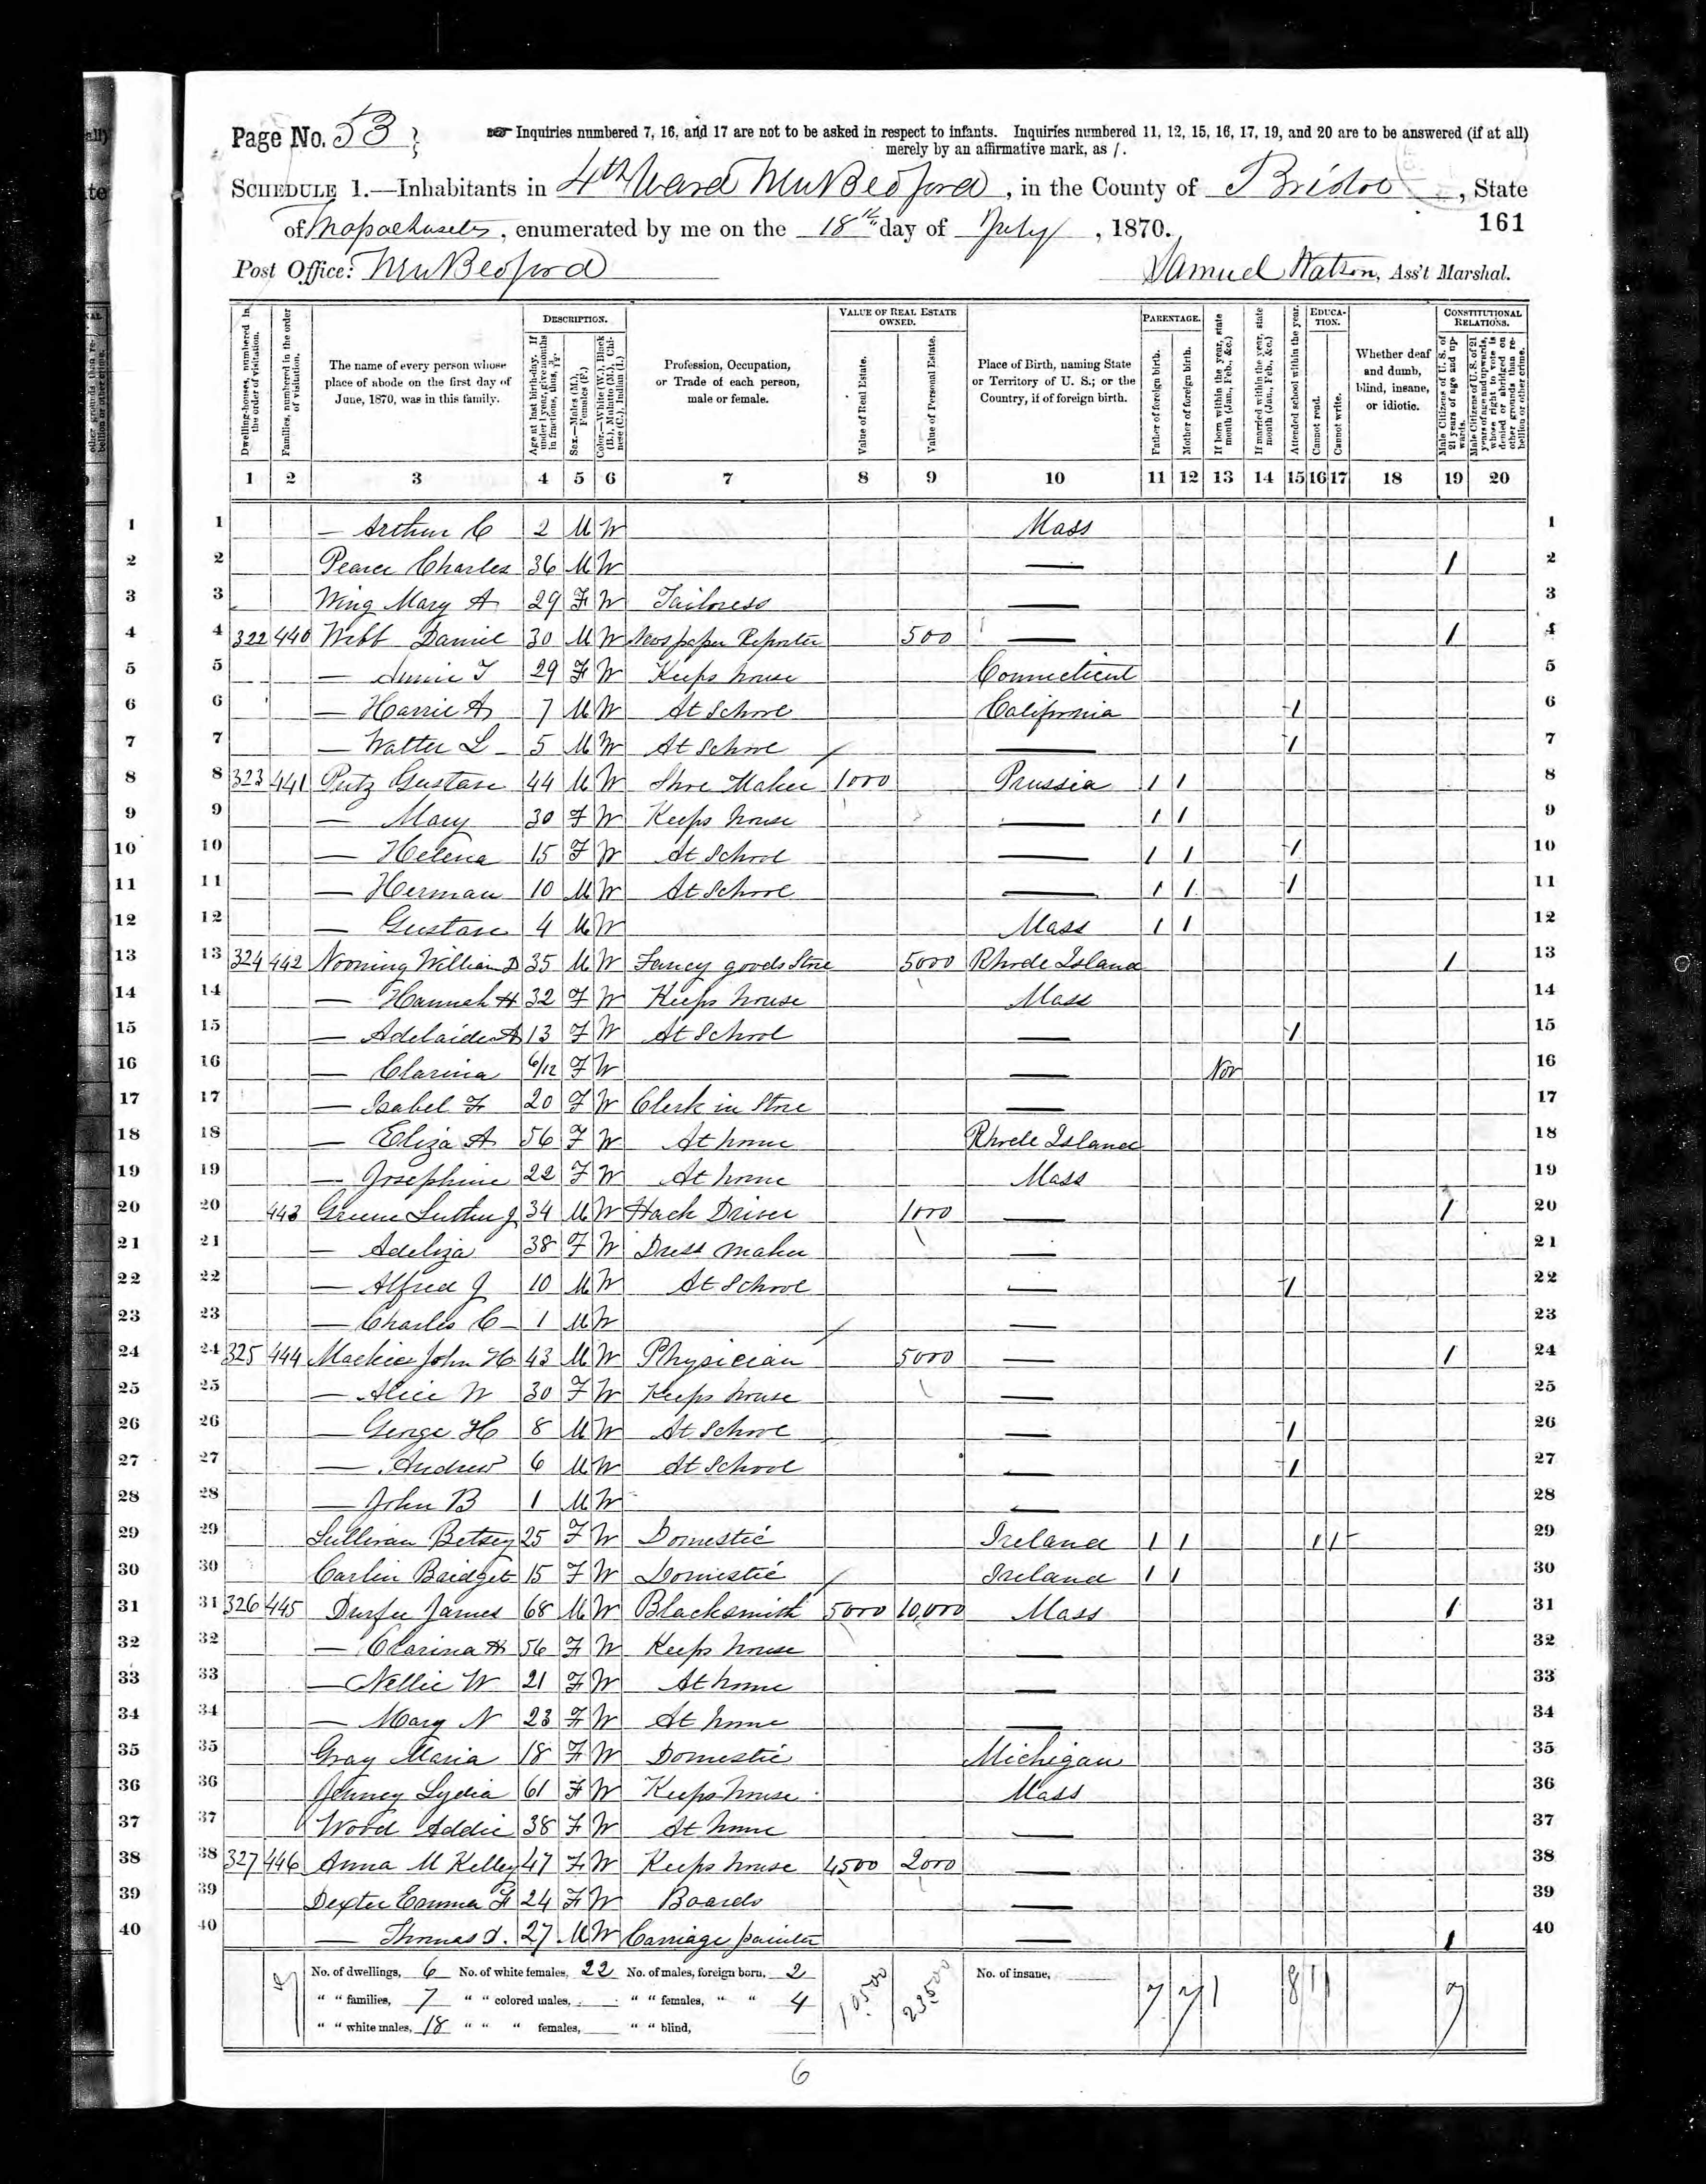 Page No. 53
Inquiries numbered 7, 16, and 17 are not to be asked in respect to infants. Inquiries numbered 11, 12, 15, 16, 17, 19, and 20 are to be answered (if at all)
merely by an affirmative mark, as /.
SCHEDULE 1.—Inhabitants in 4th Ward New Bedford, in the County of Bristol, State
161
of Massachusetts, enumerated by me on the 18th day of July, 1870.
Post Office: New Bedford
Samuel Watson, Ass't Marshal.
Dwelling-houses, numbered in the order of visitation.
Families, numbered in the order of visitation.
The name of every person whose place of abode on the first day of June, 1870, was in this family.
DESCRIPTION.
Age at last birth-day. If under 1 year, give months in fractions, thus, 3/12.
Sex.—Males (M.), Females (F.)
Color.—White (W.), Black (B.), Mulatto (M.), Chinese (C.), Indian (I.)
Profession, Occupation, or Trade of each person, male or female.
VALUE OF REAL ESTATE OWNED.
Value of Real Estate.
Value of Personal Estate.
Place of Birth, naming State or Territory of U. S.; or the Country, if of foreign birth.
PARENTAGE.
Father of foreign birth.
Mother of foreign birth.
If born within the year, state month (Jan., Feb., &c.)
If married within the year, state month (Jan., Feb., &c.)
Attended school within the year.
EDUCATION.
Cannot read.
Cannot write.
Whether deaf and dumb, blind, insane, or idiotic.
CONSTITUTIONAL RELATIONS.
Male Citizens of U.S. of 21 years of age and upwards.
Male Citizens of U.S. of 21 years of age and upwards, whose right to vote is denied or abridged on other grounds than rebellion or other crime.
1 2 3 4 5 6 7 8 9 10 11 12 13 14 15 16 17 18 19 20
1 — Arthur C 2 M W Mass 1
2 Pearce Charles 36 M W — / 2
3 Wing Mary A 29 F W Tailoress — 3
4 322 440 Webb Daniel 30 M W Newspaper Reporter 500 — / 4
5 — Annie T 29 F W Keeps house Connecticut 5
6 — Harrie A 7 M W At School California / 6
7 — Walter L 5 M W At School — / 7
8 323 441 Putz Gustave 44 M W Shoe Maker 1000 Prussia / / 8
9 — Mary 30 F W Keeps house — / / 9
10 — Helena 15 F W At School — / / / 10
11 — Herman 10 M W At School — / / / 11
12 — Gustave 4 M W Mass / / 12
13 324 442 Nooning William D 35 M W Fancy goods Store 5000 Rhode Island / 13
14 — Hannah H 32 F W Keeps house Mass 14
15 — Adelaide A 13 F W At School — / 15
16 — Clarina 6/12 F W — Nov 16
17 — Isabel F 20 F W Clerk in Store — 17
18 — Eliza A 56 F W At home Rhode Island 18
19 — Josephine 22 F W At home Mass 19
20 443 Greene Luther J 34 M W Hack Driver 1000 — / 20
21 — Adeliza 38 F W Dress maker — 21
22 — Alfred J 10 M W At School — / 22
23 — Charles C 1 M W — 23
24 325 444 Mackie John H 43 M W Physician 5000 — / 24
25 — Alice W 30 F W Keeps house — 25
26 — George H 8 M W At School — / 26
27 — Andrew 6 M W At School — / 27
28 — John B 1 M W — 28
29 Sullivan Betsey 25 F W Domestic Ireland / / / / 29
30 Carlin Bridget 15 F W Domestic Ireland / / 30
31 326 445 Durfee James 68 M W Blacksmith 5000 10,000 Mass / 31
32 — Clarina H 56 F W Keeps house — 32
33 — Nellie W 21 F W At home — 33
34 — Mary N 23 F W At home — 34
35 Gray Maria 18 F W Domestic Michigan 35
36 Jenney Lydia 61 F W Keeps house Mass 36
37 Wood Addie 38 F W At home — 37
38 327 446 Anna M Kelley 47 F W Keeps house 4500 2000 — 38
39 Dexter Emma F 24 F W Boards — 39
40 — Thomas S. 27 M W Carriage painter — / 40
No. of dwellings, 6 No. of white females, 22 No. of males, foreign born, 2 10500 23500 No. of insane, 7 7 1 8 1 1 7
" " families, 7 " " colored males, " " females, " " 4
" " white males, 18 " " " females, " " blind,
6